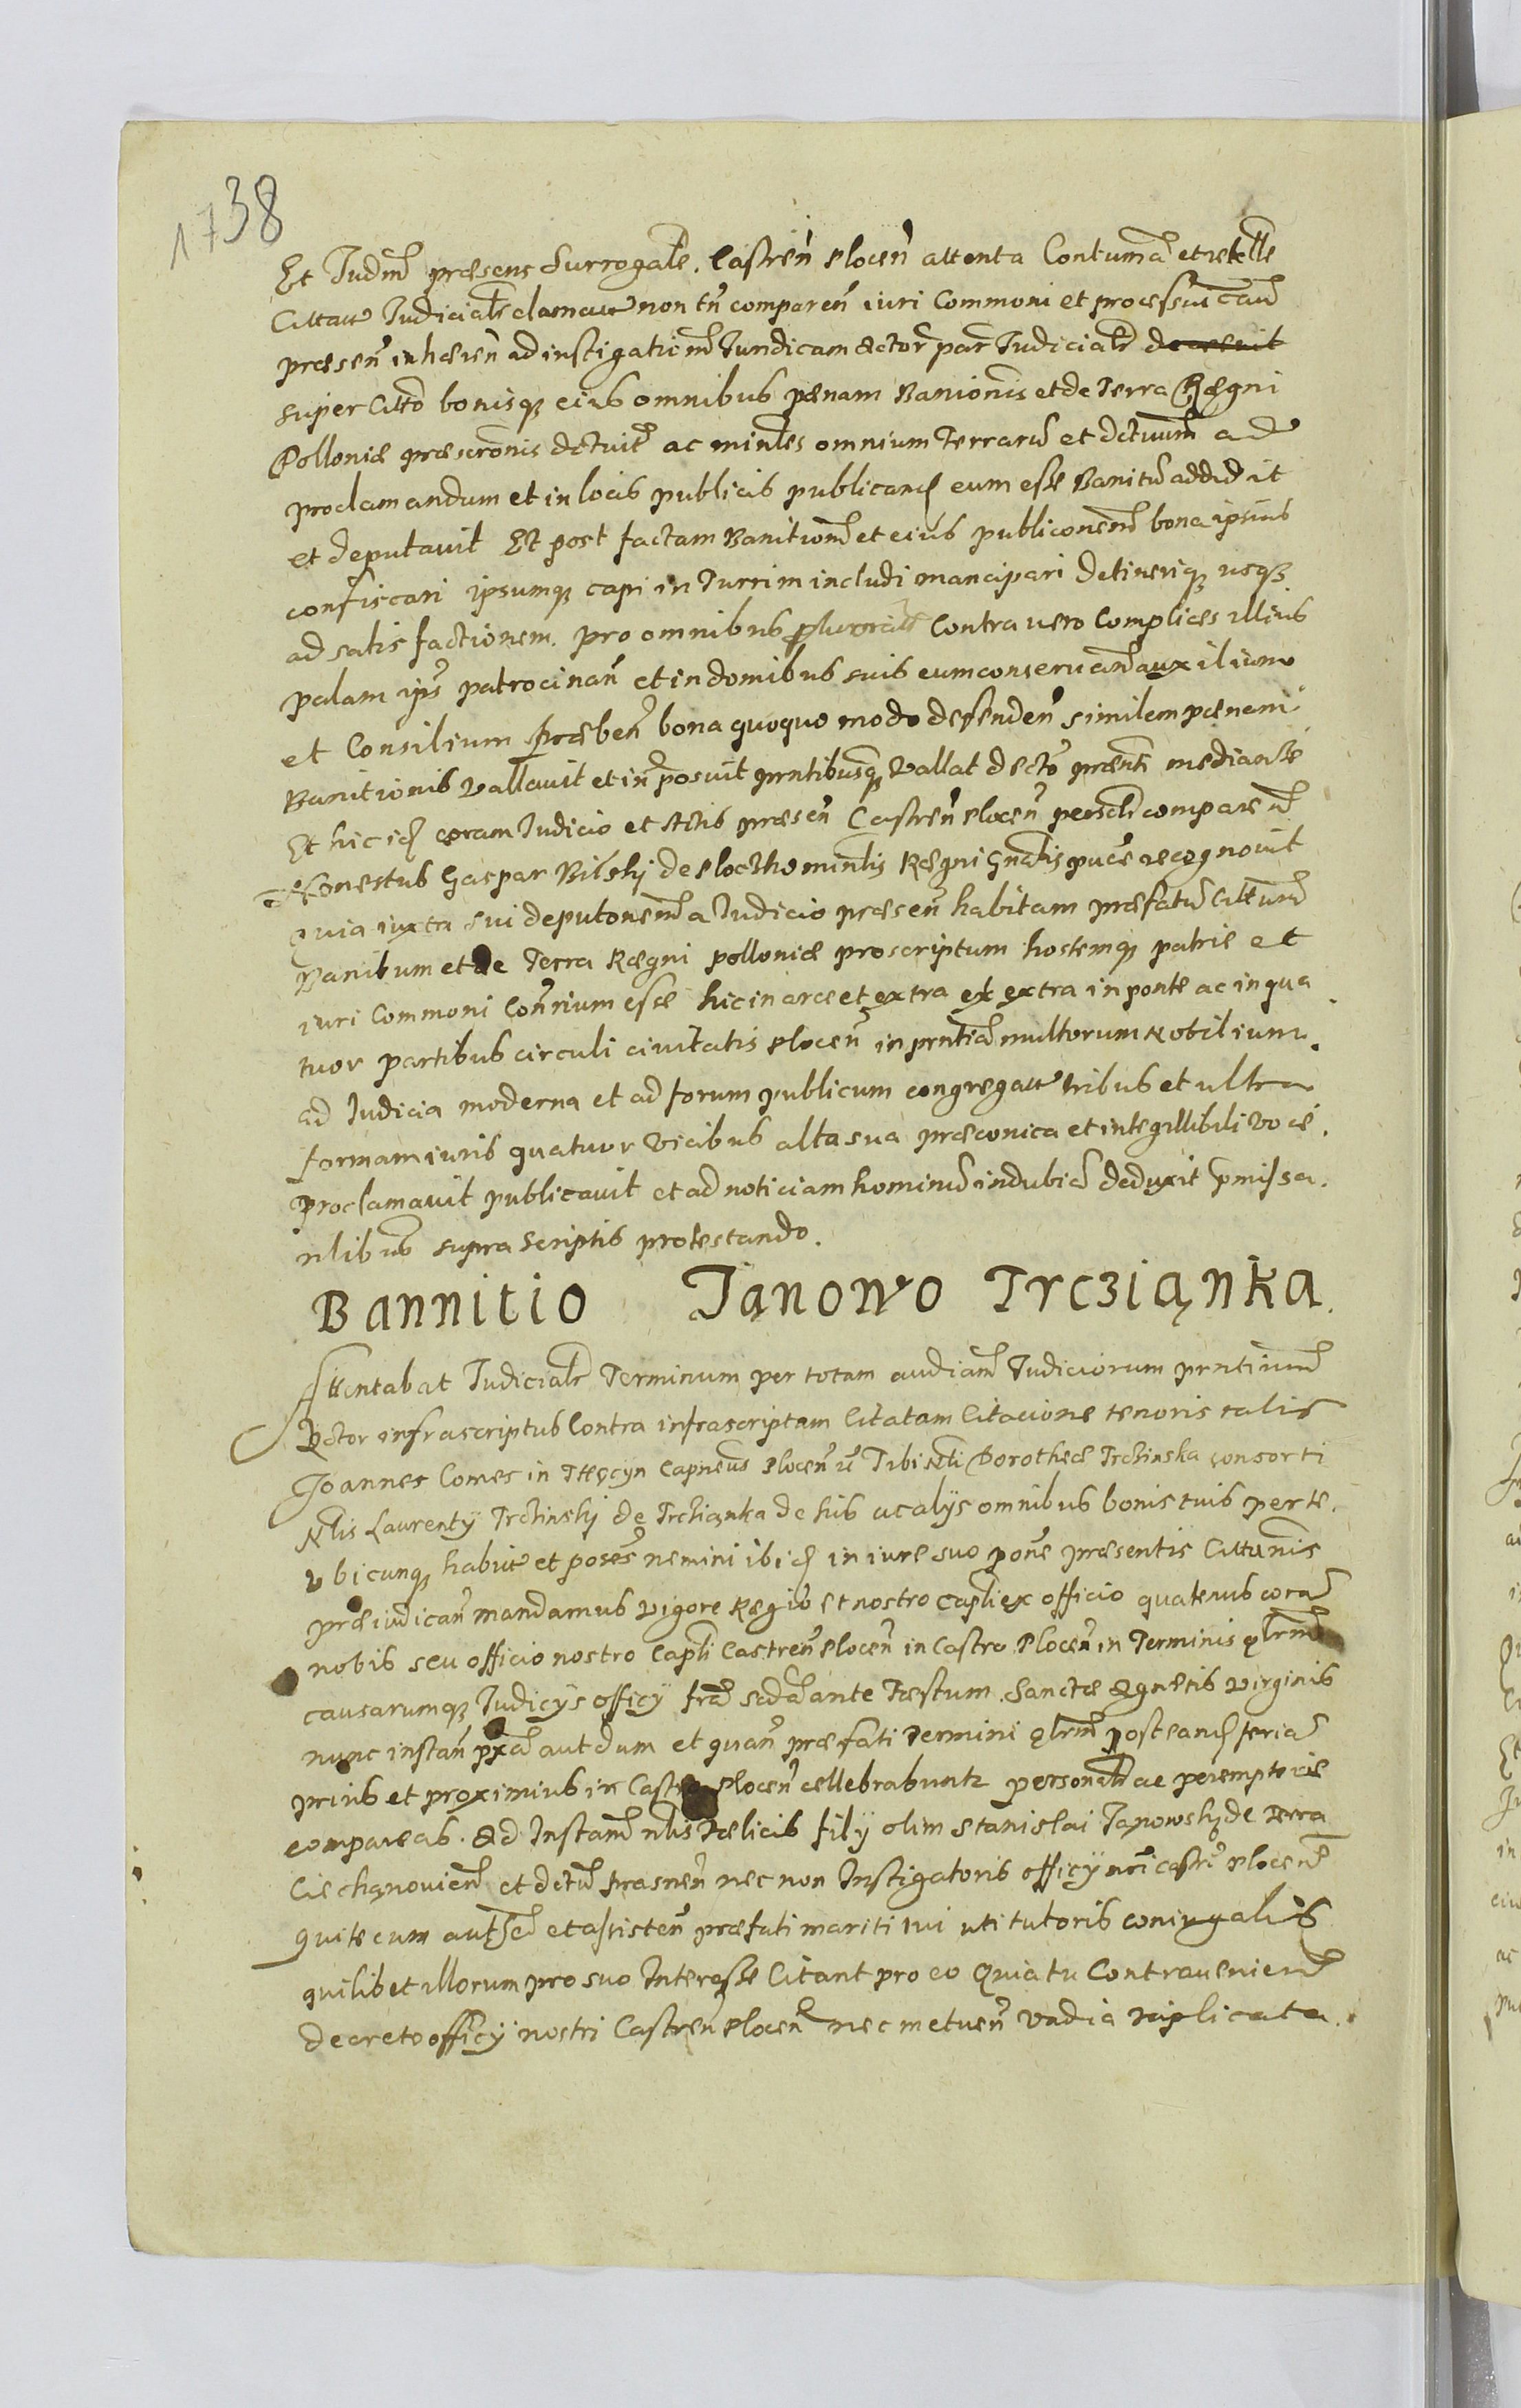 1738
Et Judm̄ præsens Surrogale. CastreñPloceñ attenta Contumā et rebelle
Cittatt Judicialr clamatt non tñ compareñ iuri Commoni et processui cauē
præseñ inhæreñ ad instigatiōm Juridicam Actor par̄ Judicialr decrevit
super Citto bonisq̨ eius omnibus pænam Banionis et de Terra Rægni
Polloniæ præscronis dctuit ac minles omnium Terrarū et dctuum ad
proclamandum et in locis publicis publicand eum esse Banitū addidit
et deputavit Et post factam Banitionē et eius publiconem̄ bona ipsius
confiscari ipsumq̨ capi in Turrim includi mancipari detineriq̨ usq̨
ad satis factionem. pro omnibus Contra vero Complices illius
palam ips patrocinañ et in domibus suis eum conservañ auxilium
et Consilium præbeñ bona quoquo modo defendeñ similem pænam
Banitionis vallavit et in posuit prntibusq̨ vallat decto prænti mediante
Et hic id coram Judicio et Actis præseñ Castreñ Ploceñ persolr comparen
Honestus Gaspar Bilskj de Ploczko minlis Rægni Gnalis puce recognovit
Quia iuxta sui deputonem̄ a Judicio præseñ habitam præfatū Citt
Banitum et de Terra Rægni polloniæ proscriptum hostemq̨ patriæ et
iuri Commoni Conrium esse hic in arce et extra et extra in ponte ac in qua
tuor partibus circuli civitatis Ploceñ in prntiā multorum Nobilium.
ad Judicia moderna et ad forum publicum congregatt tribus et ultra
formam iuris quatuor vicibus alta sua præconica et integillibili voce.
proclamavit publicavit et ad noticiam hominū indubiē deduxit pmissa.
nlibus supra Scriptis protestando.
Bannitio Janowo Trcziąnka.
Attentabat Judicialr Terminum per totam audiam̄ Judiciorum prntium
Actor infrascriptus Contra infrascriptam Citatam Citacione tenoris talis
Joannes Comes in Tęczyn Capneus Ploceñ Tibi Nli Dorotheæ Trczinska consorti
Nlis Laurentÿ Trczinskj de Trcziąnka de his ac alÿs omnibus bonis tuis per te.
Vbicunq̨ habitr et poses nemini ibid in iure suo pone præsentis Cittanis
præiudicañ mandamus vigore Regio et nostro Capli ex officio quatenus corā
nobis seu officio nostro Capli Castreñ Ploceñ in Castro Ploceñ in Terminis qlrm
causarumq̨ Judicÿs officÿ fra secda ante Fæstum Sanctæ Agnetis Virginis
nunc instañ pxa aut dum et quañ præfati Termini qlrm posteand feria
prius et proximius in Castro Ploceñ cellebrabuntr personalr ac peremptorie
compareas. Ad Instam̄ nlis Fælicis filÿ olim Stanislai Janowskj de Terra
Ciechąnovieñ et dctu Prasneñ nec non Instigatoris officÿ nri castr Ploceñ
Qui te cum autē et assisteñ præfati mariti tui uti tutoris coniugalis
quilibet illorum pro suo Interesse Citant pro eo Quia tu Contraveniend
decreto officÿ nostri Castreñ Ploceñ nec metueñ vadia triplicata.